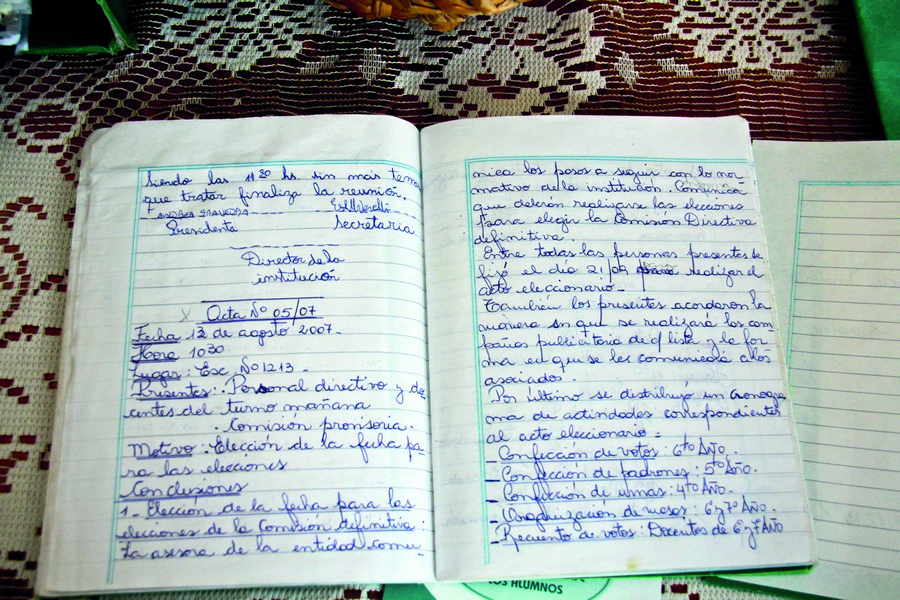 Siendo las 11 30 hs. sin más temas
que tratar finaliza la reunión.
Presidenta Secretaria
Directora de la
institución
Acta Nº 05/07
Fecha 13 de agosto 2007.-
Hora 10 30
Lugar: Esc. Nº 1213.-
Presentes: . Personal directivo y do-
centes del turno mañana
. Comisión provisoria.
Motivo: Elección de la fecha pa-
ra las elecciones
Conclusiones
1- Elección de la fecha para las
elecciones de la Comisión definitiva:
La asesora de la entidad comu-
nica los pasos a seguir con lo nor-
mativo de la institución. Comunica
que deberán realizarse las elecciones
para elegir la Comisión Directiva
definitiva.
Entre todas las personas presentes se
fijó el día 21/09 para realizar el
acto eleccionario.-
También los presentes acordaron la
manera en que se realizará las cam-
pañas publicitaria de c/ lista y la for-
ma en que se les comunicará a los
asociados.
Por último se distribuyó un cronogra-
ma de actividades correspondientes
al acto eleccionario.-
- Confección de votos: 6to Año.
- Confección de padrones: 5to Año.
- Confección de urnas: 4to Año.-
- Organización de mesas: 6 y 7º Año.
- Recuento de votos: Docentes de 6º y 7º Año
LOS ALUMNOS